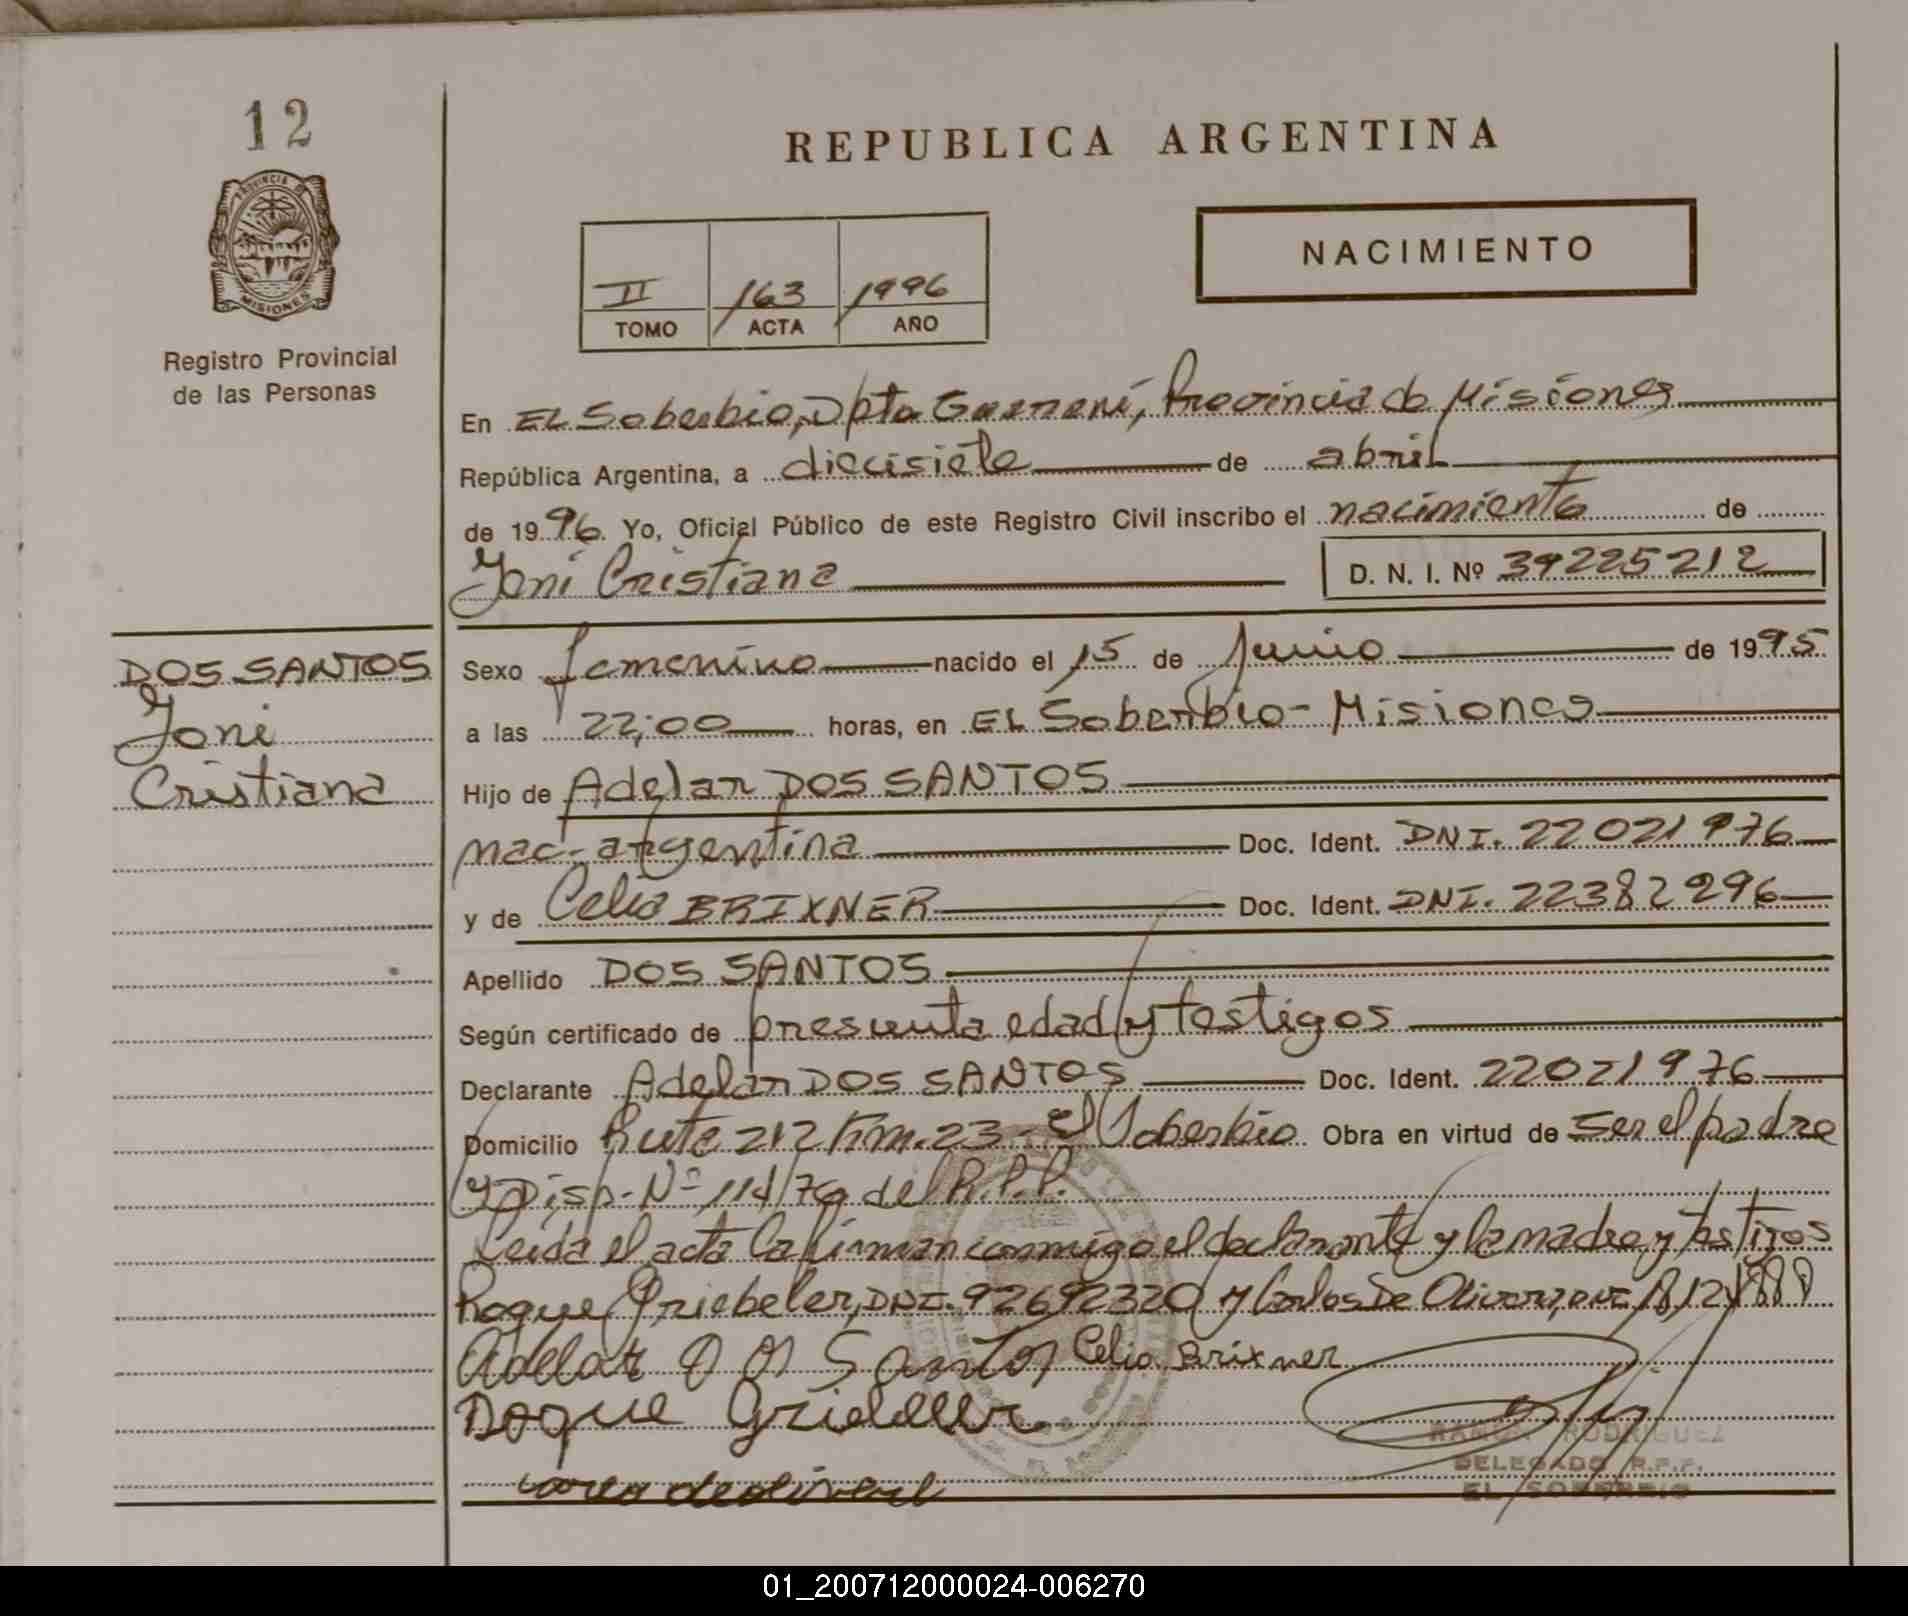 12
REPUBLICA ARGENTINA
PROVINCIA DE
MISIONES
NACIMIENTO
II 163 1996
TOMO ACTA AÑO
Registro Provincial
de las Personas
En EL Soberbio, Dpto Guarani, Provincia de Misiones
República Argentina, a diecisiete de abril
de 1996. Yo, Oficial Público de este Registro Civil inscribo el nacimiento de
Joni Cristiana D. N. I. Nº 39225212
DOS SANTOS
Joni
Cristiana
Sexo femenino nacido el 15 de Junio de 1995
a las 22;00 horas, en EL Soberbio - Misiones
Hijo de Adelar DOS SANTOS
nac- argentina Doc. Ident. DNI. 22021976
y de Celia BRIXNER Doc. Ident. DNI. 22382296
Apellido DOS SANTOS
Según certificado de presunta edad y testigos
Declarante Adelar DOS SANTOS Doc. Ident. 22021976
Domicilio Ruta 212 Km. 23 - El Soberbio Obra en virtud de ser el padre
y Disp. Nº 114/79 del R.P.P.
Leida el acta la firman conmigo el declarante y la madre, y testigos
Roque Griebeler, DNI. 92692320 y Carlos De Olivera, DNI
Adelar Dos Santos Celia Brixner
Roque Griebeler
RODRIGUEZ
DELEGADO R.P.P.
EL SOBERBIO
01_200712000024-006270